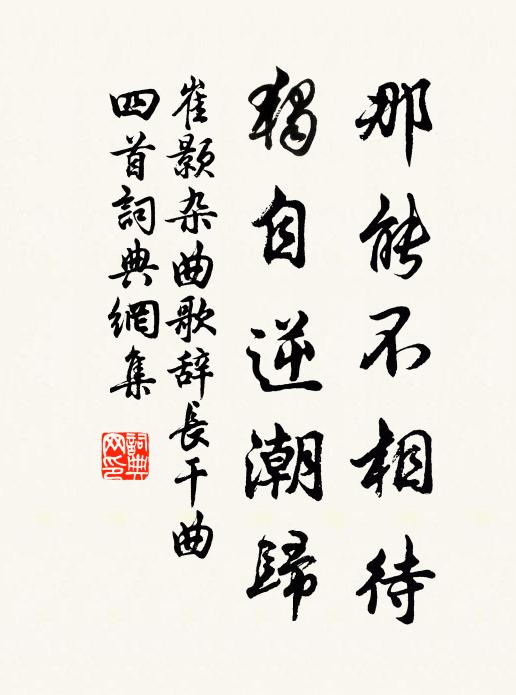 那能不相待
獨自逆潮歸
崔顥杂曲歌辞長干曲
四首詞典網集
詞典
网印